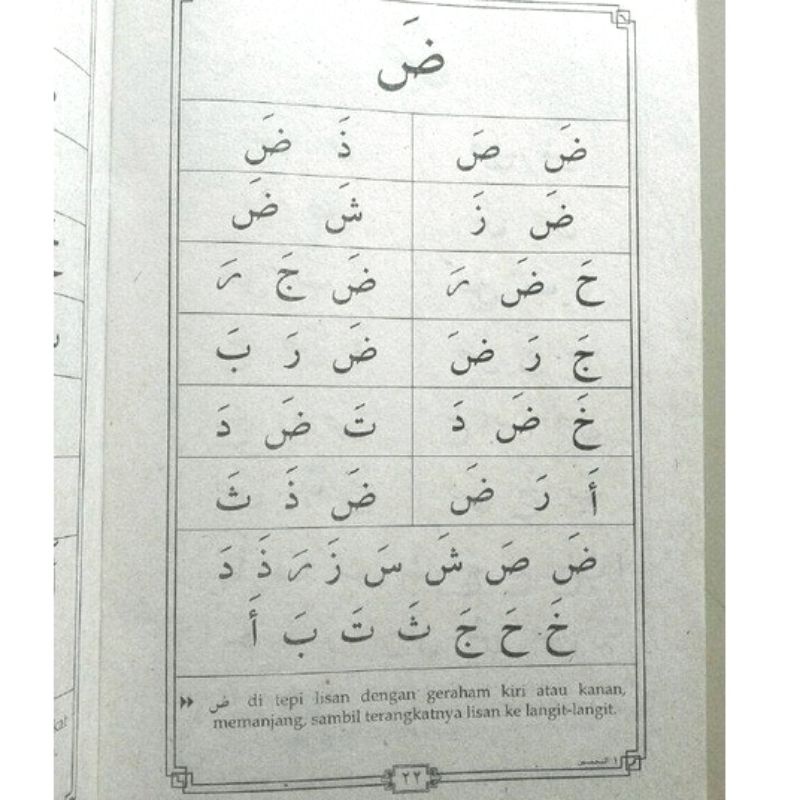 ضَ
ضَ صَ ذَ ضَ
ضَ زَ شَ ضَ
حَ ضَ رَ ضَ جَ رَ
جَ رَ ضَ ضَ رَ بَ
خَ ضَ دَ تَ ضَ دَ
أَ رَ ضَ ضَ ذَ ثَ
ضَ صَ شَ سَ زَ رَ ذَ دَ
خَ حَ جَ ثَ تَ بَ أَ
ض di tepi lisan dengan geraham kiri atau kanan,
memanjang, sambil terangkatnya lisan ke langit-langit.
٢٢